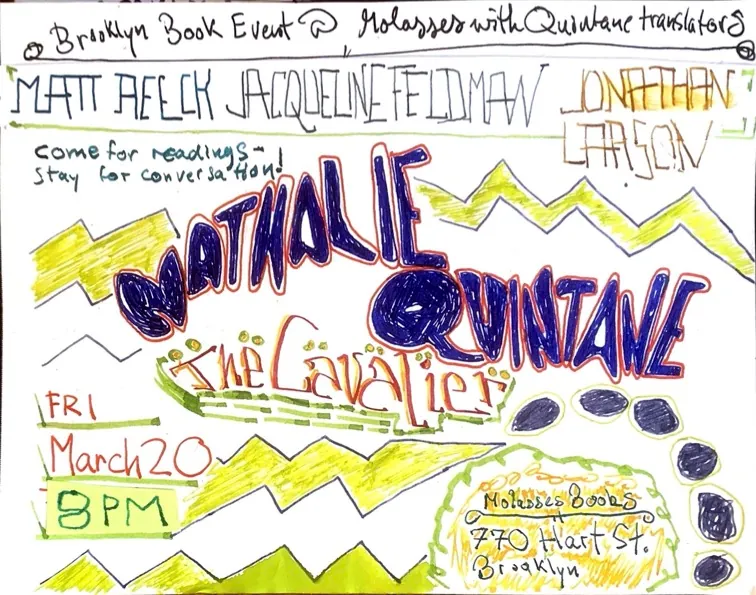 Brooklyn Book Event @ Molasses with Quintane translators
MATT REECK JACQUELINE FELDMAN JONATHAN LARSON
Come for readings-
Stay for conversation!
NATHALIE
QUINTANE
The Cavalier
FRI
March 20
8PM
Molasses Books
770 Hart St.
Brooklyn